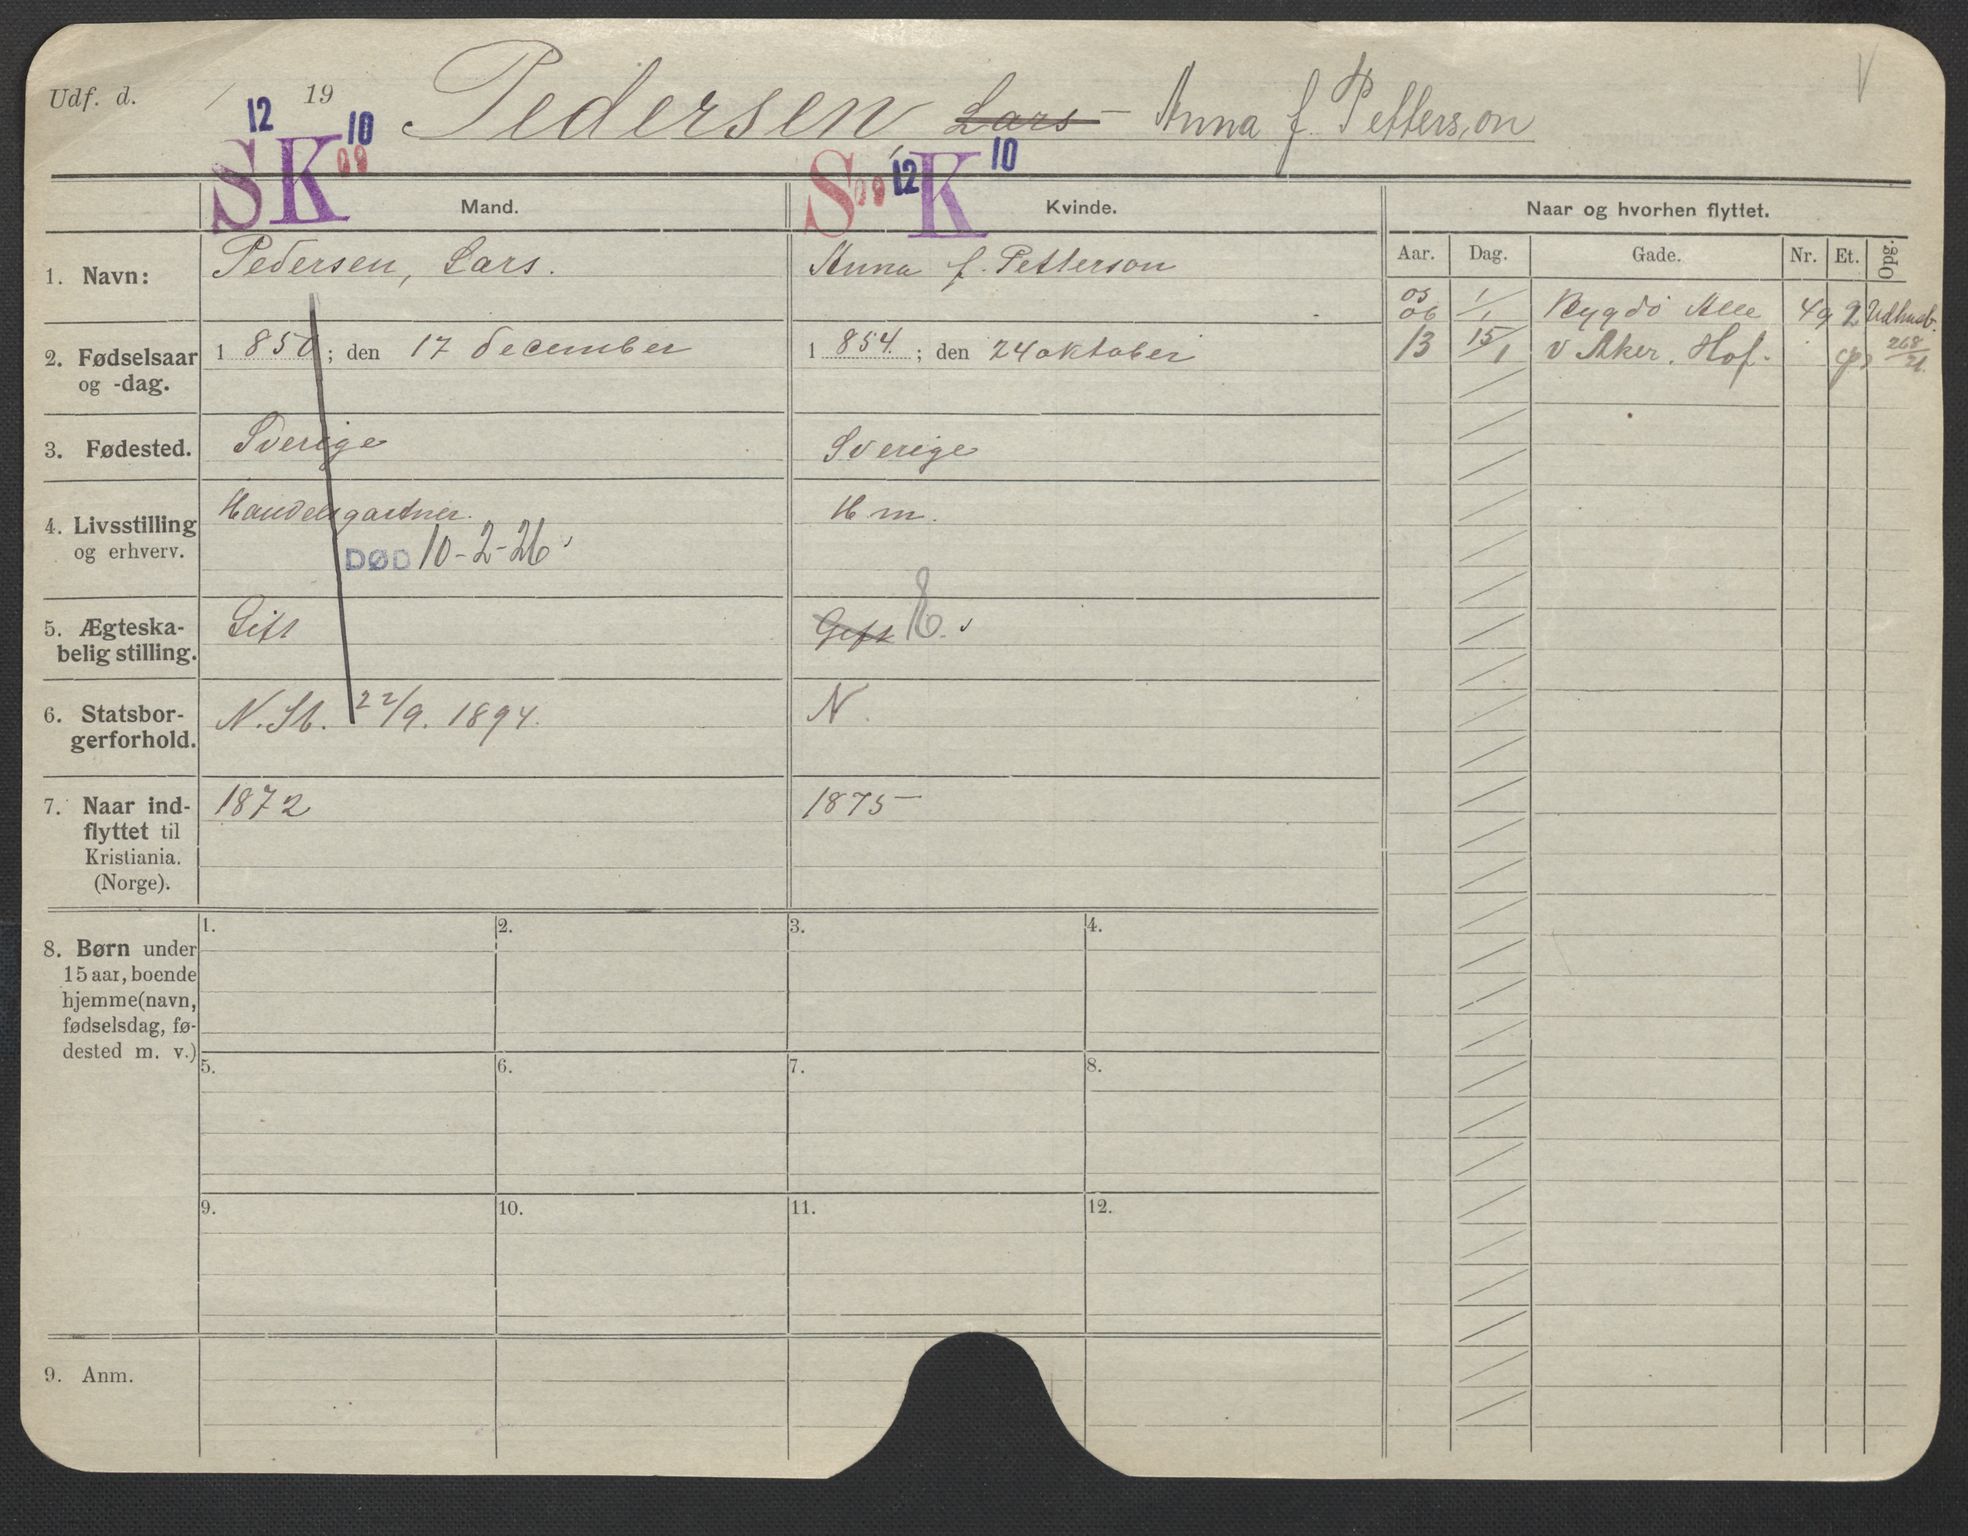 Udf. d. / 19 Pedersen Lars – Anna f. Petterson
12 SK 10 09
S 09 12 K 10
V
Mand. Kvinde. Naar og hvorhen flyttet.
Aar. Dag. Gade. Nr. Et. Opg.
1. Navn: Pedersen, Lars. Anna f. Petterson
05
06 1/1 Bygdø Alle 49 2 Udhusb.
13 15/1 V Aker. Hof. 268/21.
2. Fødselsaar
og -dag.
1 850; den 17 december 1 854.; den 24 oktober
3. Fødested. Sverige Sverige
4. Livsstilling
og erhverv.
Handelsgartner. H m.
DØD 10-2-26
5. Ægteska-
belig stilling.
Gift Gift E.
6. Statsbor-
gerforhold.
N. St. 22/9. 1894. N.
7. Naar ind-
flyttet til
Kristiania.
(Norge).
1872 1875
8. Børn under
15 aar, boende
hjemme(navn,
fødselsdag, fø-
dested m. v.)
1. 2. 3. 4.
5. 6. 7. 8.
9. 10. 11. 12.
9. Anm.